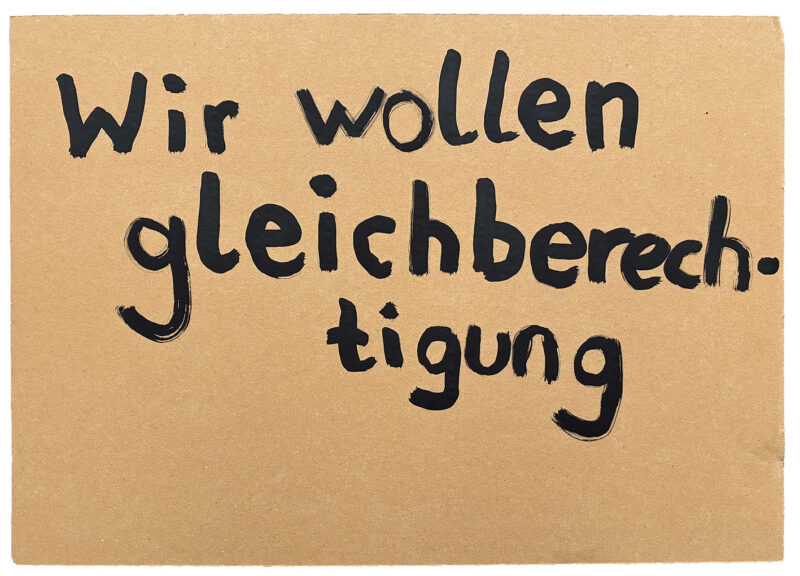 Wir wollen
gleichberech-
tigung